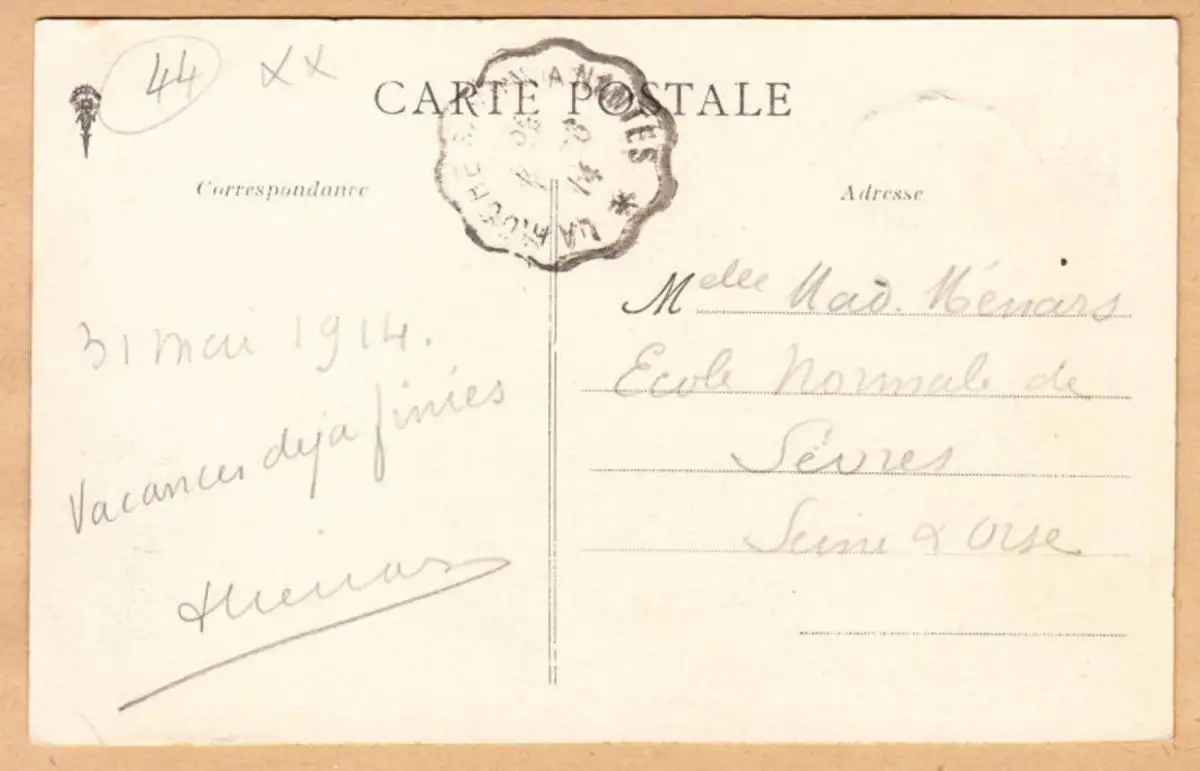 44 XX
CARTE POSTALE
LA ROCHE S. YON A NANTES *
14
Correspondance
Adresse
31 mai 1914.
Vacances déja finies
Mdelle Mad. Ménars
Ecole Normale de
Sèvres
Seine & Oise